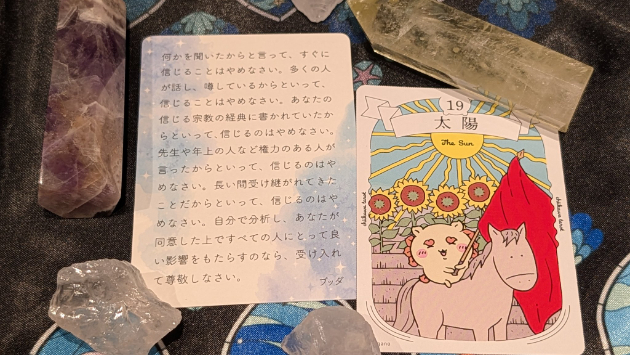 何かを聞いたからと言って、すぐに
信じることはやめなさい。多くの人
が話し、噂しているからといって、
信じることはやめなさい。あなたの
信じる宗教の経典に書かれていたか
らといって、信じるのはやめなさい。
先生や年上の人など権力のある人が
言ったからといって、信じるのはや
めなさい。長い間受け継がれてきた
ことだからといって、信じるのはや
めなさい。自分で分析し、あなたが
同意した上ですべての人にとって良
い影響をもたらすのなら、受け入れ
て尊敬しなさい。
ブッダ
19
太陽
The Sun